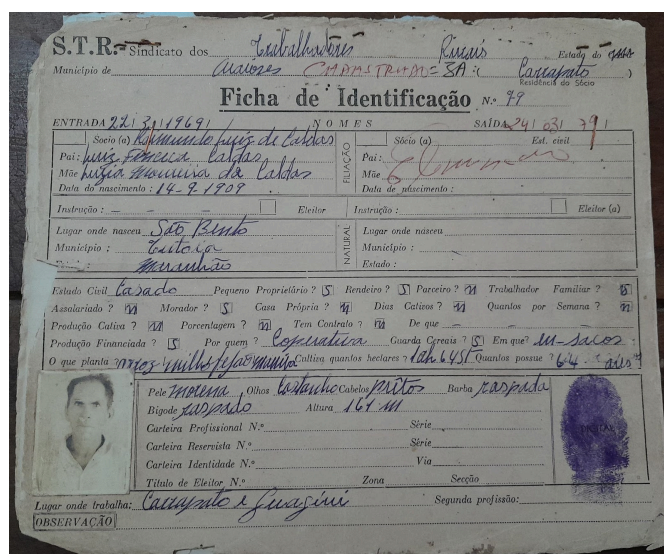 S.T.R. - Sindicato dos Trabalhadores Rurais Estado do MA
Município de Araioses CADASTRADO = SA: Carrapato
Residência do Sócio
Ficha de Identificação N.º 79
ENTRADA 22/3/1969 NOMES SAÍDA 24/03/79
Sócio (a) Raimundo Luiz de Caldas Sócio (a) Est. civil
Pai: Luiz Fonseca Caldas FILIAÇÃO Pai:
Mãe Luzia Moreira de Caldas Mãe
Data do nascimento: 14-9-1909 Data de nascimento:
Instrução: - - - Eleitor Instrução: Eleitor (a)
Lugar onde nasceu São Bento NATURAL Lugar onde nasceu
Município: Tutoia Município:
Maranhão Estado:
Estado Civil Casado Pequeno Proprietário? S Rendeiro? S Parceiro? N Trabalhador Familiar? S
Assalariado? N Morador? S Casa Própria? N Dias Cativos? N Quantos por Semana? N
Produção Cativa? N Porcentagem? N Tem Contrato? N De que - -
Produção Financiada? S Por quem? Coperativa Guarda Cereais? S Em que? em sacos
O que planta? arroz milho feijão maniva Cultiva quantos hectares? Quantos possue? 64 ares
Pele morena Olhos Castanho Cabelos pritos Barba raspada
Bigode raspado Altura 167 m
Carteira Profissional N.º Série
Carteira Reservista N.º Série
Carteira Identidade N.º Via
Título de Eleitor N.º Zona Secção
DIGITAL
Lugar onde trabalha: Carrapato e Segunda profissão:
OBSERVAÇÃO